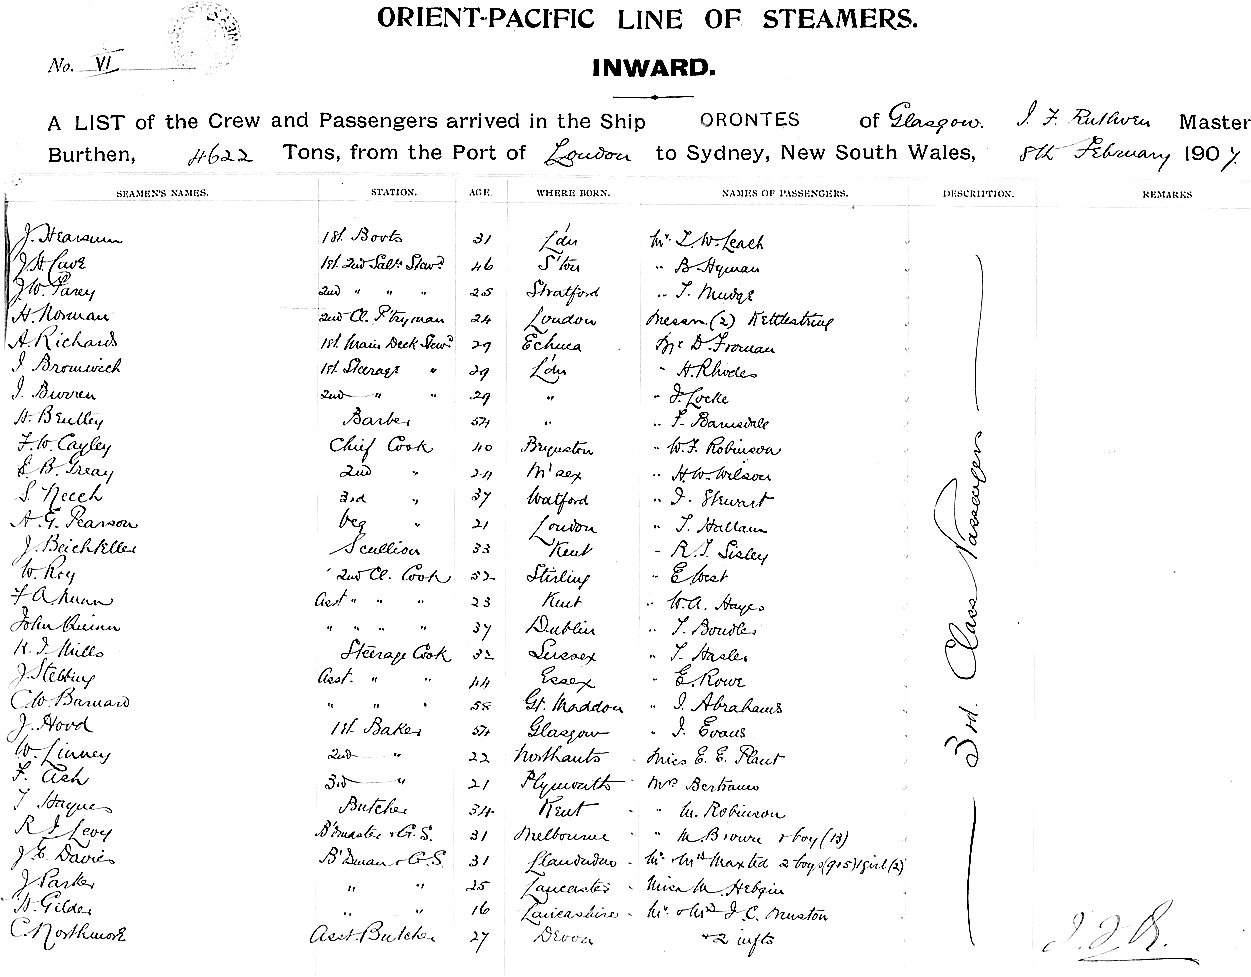 ORIENT-PACIFIC LINE OF STEAMERS.
No. VI
INWARD.
A LIST of the Crew and Passengers arrived in the Ship ORONTES of Glasgow. J. F. Ruthven Master
Burthen, 4622 Tons, from the Port of London to Sydney, New South Wales, 8th February 1907.
SEAMEN'S NAMES. STATION. AGE. WHERE BORN. NAMES OF PASSENGERS. DESCRIPTION. REMARKS
J. Hearsum 1st. Boots 31 L'dn Mr. L. W. Leach
J. H. Cave 1st. 2nd Saltn Stewd 46 S'ton " B. Hyman
J. W. Pavey 2nd " " " 25 Stratford " T. Mudge
H. Norman 2nd Cl. P'tryman 24 London Messrs (2) Kettlestring
A. Richards 1st. Main Deck Stewd 29 Echuca Mr D. Froman
J. Bromwich 1st. Steerage " 29 L'dn " H. Rhodes
J. Burren 2nd " " 29 " " J. Locke
H. Bentley Barber 54 " " F. Barnsdale
F. W. Cayley Chief Cook 40 " W. F. Robinson
E. B. Greay 2nd " 24 M'sex " H. W. Wilson
S. Neech 3rd " 37 Watford " J. Stewart
A. G. Pearson Veg " 21 London " T. Hallam
J. Scullion 33 Kent " R. J. Sisley
W. Roy 2nd Cl. Cook 52 Stirling " E West
F A Nunn Asst " " " 23 Kent " W. A. Hayes
John Quinn " " " " 37 Dublin " T. Bowdler
H. J. Mills Steerage Cook 32 Sussex " T. Hasler
J. Stebbing Asst. " " 44 Essex " E. Rowe
C. W. Barnard " " " 58 Gt. Maddon " J. Abrahams
J. Hood 1st. Baker 54 Glasgow " J. Evans
W. Linney 2nd " 22 Northants Miss E. E. Plant
F. Ash 3rd " 21 Plymouth Mrs Bertram
T. Haynes Butcher 34 Kent " M. Robinson
R J Levy B'master & G.S. 31 Melbourne " M Brown & boy (13)
J. E. Davies B'Dman & G.S. 31 Llandudno Mr. & Mrs Maxted 2 boys (9&5) 1 girl (2)
J Parker " " 25 Lancaster Miss M Hebgin
H. Gilder " " 16 Lancashire Mr. & Mrs J. C. Muston
C. Northmore Asst Butcher 27 Devon & 2 infts
3rd. Class Passengers
J. F. R.